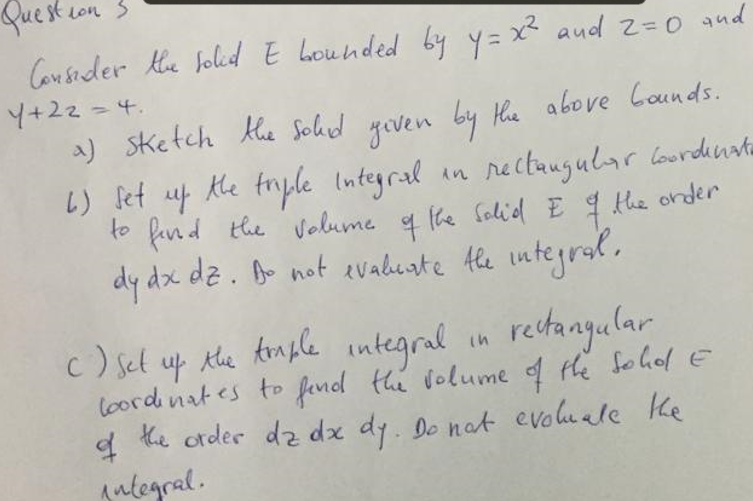 Question 3
Consider the solid E bounded by y = x² and z = 0 and
y + 2z = 4.
a) Sketch the solid given by the above bounds.
b) Set up the triple integral in rectangular coordinate
to find the volume of the solid E of the order
dy dx dz. Do not evaluate the integral.
c) Set up the triple integral in rectangular
coordinates to find the volume of the solid E
of the order dz dx dy. Do not evaluate the
integral.